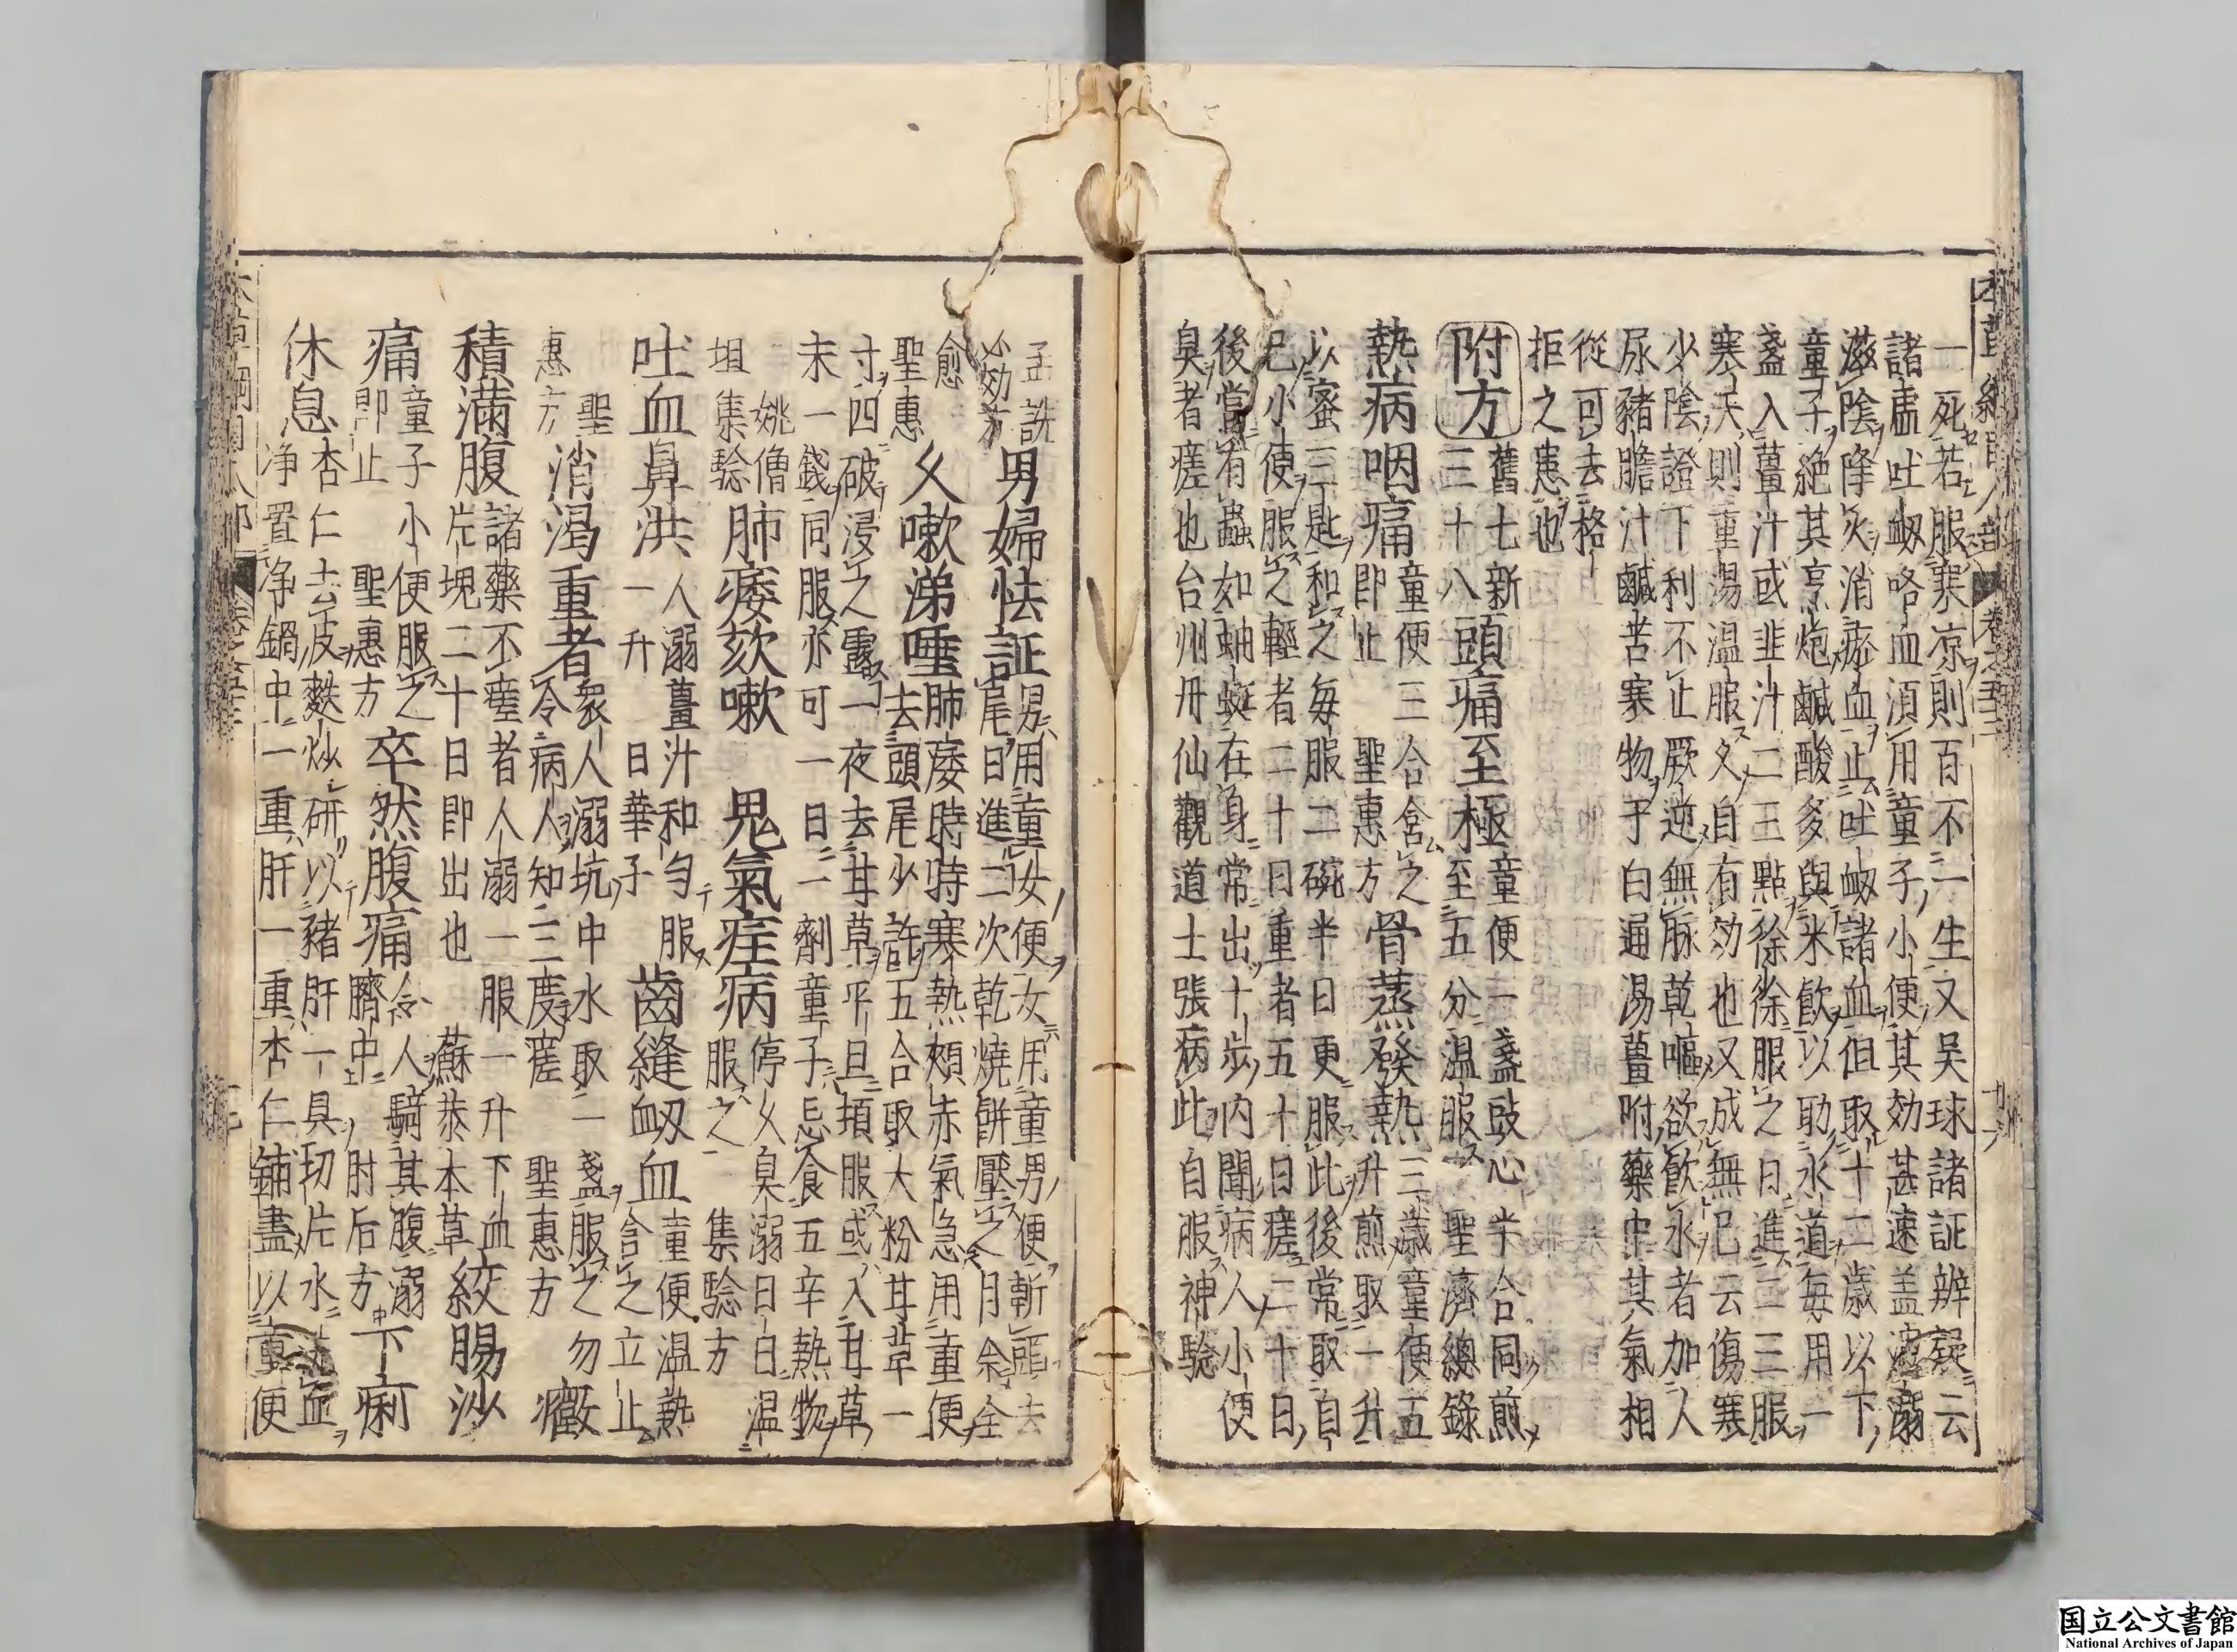 一死若服寒凉則百不一生又吴球諸証辨疑云
諸虚吐衂咯血須用童子小便其効甚速盖溺
滋陰降火消瘀血止吐衂諸血但取十二歲以下
童子絶其烹炮鹹酸多與米飲以助水道毎用一
盞入薑汁或韭汁二三點徐徐服之日進二三服
寒天則重湯温服久自有効也又成無已云傷寒
少陰證下利不止厥逆無脉乾嘔欲飲水者加人
尿豬膽汁鹹苦寒物于白通湯薑附藥中其氣相
從可去格
拒之患也
附方
舊七新
三十八
頭痛至極
童便一盞豉心半合同煎
至五分温服 聖濟總錄
熱病咽痛
童便三合含之
即止 聖惠方
骨蒸發熱
三歲童便五
升煎取一升
以蜜三匙和之毎服二碗半日更服此後常取自
已小便服之輕者二十日重者五十日瘥二十日
後當有蟲如蚰蜒在身常出十步内聞病人小便
臭者瘥也台州丹仙觀道士張病此自服神驗
孟詵
必効方
男婦怯証
男用童女便女用童男便斬頭去
尾日進二次乾燒餅壓之月余全
愈
聖惠
久嗽涕唾
肺痿時時寒熱頰赤氣急用童便
去頭尾少許五合取大粉甘草一
寸四破浸之露一夜去甘草平旦頓服或入甘草
末一錢同服亦可一日一劑童子忌食五辛熱物
姚僧
坦集驗
肺痿欬嗽
鬼氣疰病
停久臭溺日日温
服之 集驗方
吐血鼻洪
人溺薑汁和勻服
一升 日華子
齒縫衂血
童便温熱
含之立止
聖
惠方
消渴重者
衆人溺坑中水取一盞服之勿
令病人知三度瘥 聖惠方
癥
積滿腹
諸藥不瘥者人溺一服一升下血
片塊二十日即出也 蘇恭本草
絞腸沙
痛
童子小便服之
即止 聖惠方
卒然腹痛
令人騎其腹溺
臍中 肘后方
下痢
休息
杏仁去皮麩炒研以豬肝一具切片水洗血
净置净鍋中一重肝一重杏仁鋪盡以童便
国立公文書館
National Archives of Japan